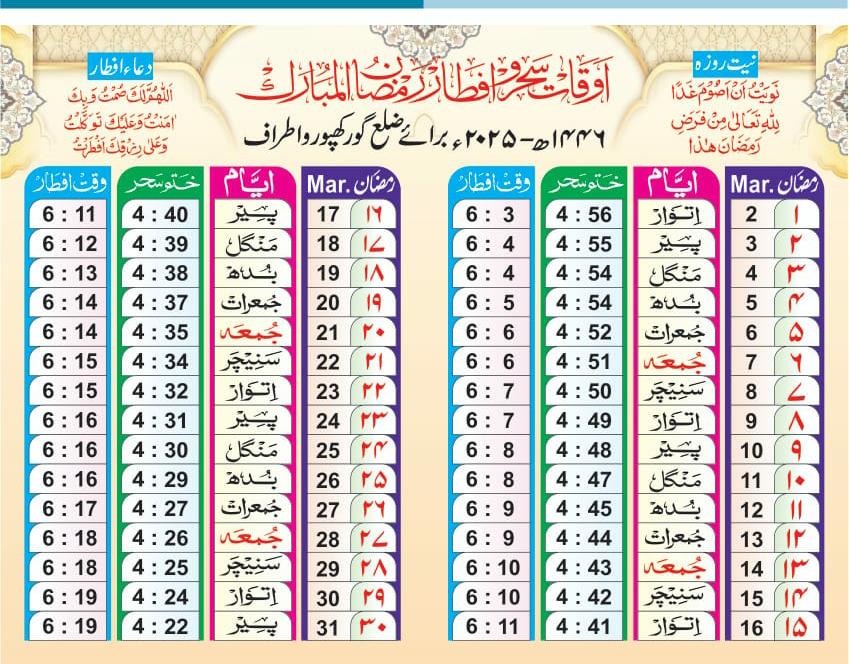 اَوقات سحر و افطار رمضان المبارک
۱۴۴۶ھ - ۲۰۲۵ء برائے ضلع گورکھپور و اطراف
نیت روزہ
نَوَيْتُ اَنْ اَصُوْمَ غَدًا
لِلّٰهِ تَعَالٰی مِنْ فَرْضِ
رَمَضَانَ هٰذَا
دعاء افطار
اَللّٰهُمَّ لَكَ صُمْتُ وَبِكَ
اٰمَنْتُ وَعَلَيْكَ تَوَكَّلْتُ
وَعَلٰی رِزْقِكَ اَفْطَرْتُ
رمضان Mar. ایّام ختم سحر وقت افطار
۱ 2 اِتوار 4 : 56 6 : 3
۲ 3 پیر 4 : 55 6 : 4
۳ 4 منگل 4 : 54 6 : 4
۴ 5 بدھ 4 : 54 6 : 5
۵ 6 جمعرات 4 : 52 6 : 6
۶ 7 جُمعہ 4 : 51 6 : 6
۷ 8 سنیچر 4 : 50 6 : 7
۸ 9 اِتوار 4 : 49 6 : 7
۹ 10 پیر 4 : 48 6 : 8
۱۰ 11 منگل 4 : 47 6 : 8
۱۱ 12 بدھ 4 : 45 6 : 9
۱۲ 13 جمعرات 4 : 44 6 : 9
۱۳ 14 جُمعہ 4 : 43 6 : 10
۱۴ 15 سنیچر 4 : 42 6 : 10
۱۵ 16 اِتوار 4 : 41 6 : 11
رمضان Mar. ایّام ختم سحر وقت افطار
۱۶ 17 پیر 4 : 40 6 : 11
۱۷ 18 منگل 4 : 39 6 : 12
۱۸ 19 بدھ 4 : 38 6 : 13
۱۹ 20 جمعرات 4 : 37 6 : 14
۲۰ 21 جُمعہ 4 : 35 6 : 14
۲۱ 22 سنیچر 4 : 34 6 : 15
۲۲ 23 اِتوار 4 : 32 6 : 15
۲۳ 24 پیر 4 : 31 6 : 16
۲۴ 25 منگل 4 : 30 6 : 16
۲۵ 26 بدھ 4 : 29 6 : 16
۲۶ 27 جمعرات 4 : 27 6 : 17
۲۷ 28 جُمعہ 4 : 26 6 : 18
۲۸ 29 سنیچر 4 : 25 6 : 18
۲۹ 30 اِتوار 4 : 24 6 : 19
۳۰ 31 پیر 4 : 22 6 : 19